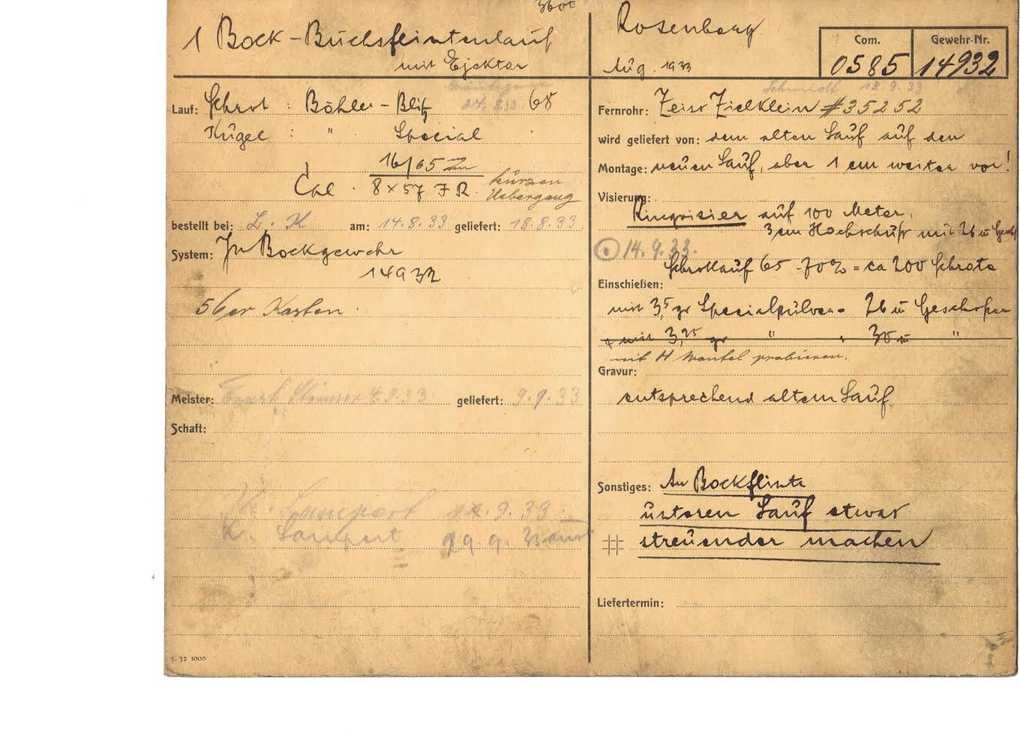 1 Bock-Büchsflintenlauf
mit Ejektor
Rosenberg
Aug. 1933
Com. Gewehr-Nr.
0585 14932
Lauf: Schrot: Böhler-Blitz 68
24.8.33
Kugel: " Special
16/65
Cal. 8 x 57 J R. kürzen
Uebergang
bestellt bei: L. K am: 14.8.33 geliefert: 18.8.33
System: In Bockgewehr
14932
56er Kasten.
Meister: 4.9.33 geliefert: 9.9.33
Schaft:
K. Lampert
S. 32 1000
Schmidt 18.9.33
Fernrohr: Zeiss Zielklein #35252
wird geliefert von: dem alten Lauf auf den
Montage: neuen Lauf, aber 1 cm weiter vor!
Visierung:
auf 100 Meter,
3 cm Hochschuss mit
14.9.33.
Schrotlauf 65-70% = ca 200 Schrote
Einschießen:
mit 3,5 gr Spezialpulver
mit 3,25 gr " " "
mit H Mantel probieren.
Gravur:
entsprechend altem Lauf
Sonstiges: An Bockflinte
unteren Lauf etwas
# streuender machen
Liefertermin: